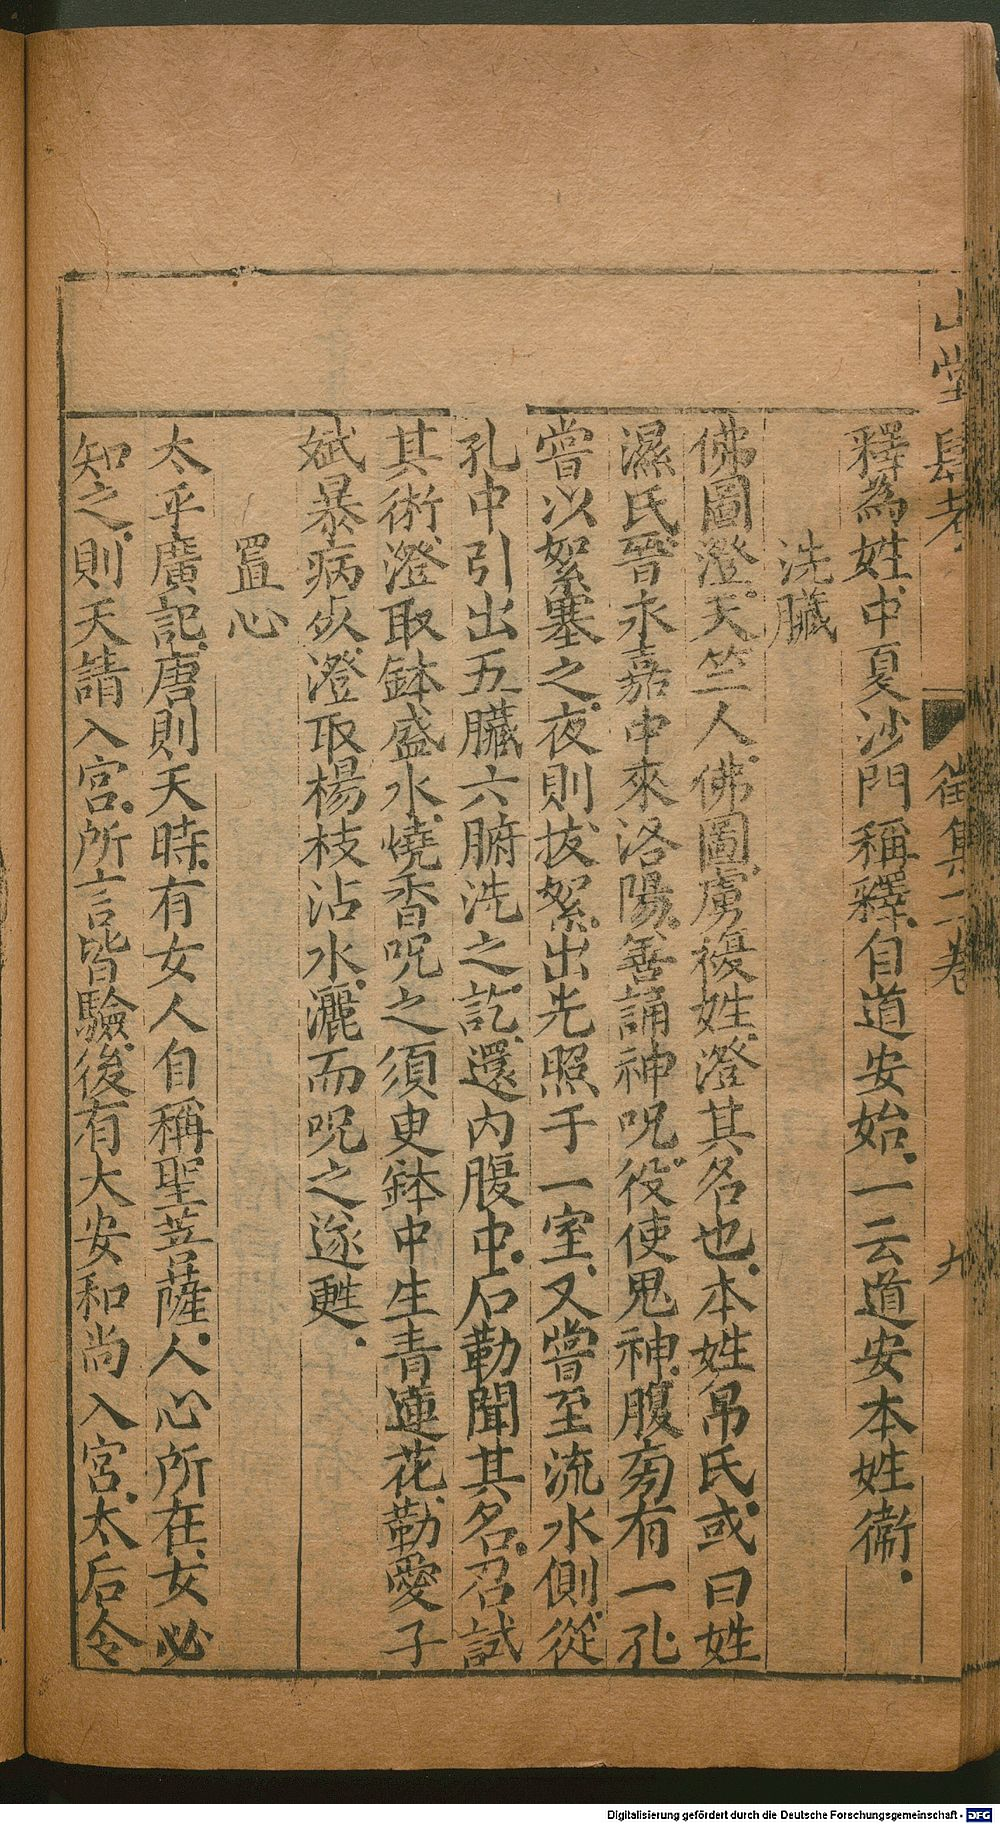 山堂肆考 徵集二卷 九
釋為姓中夏沙門稱釋自道安始一云道安本姓衞
洗臟
佛圖澄天竺人佛圖虜複姓澄其名也本姓帛氏或曰姓
濕氏晉永嘉中來洛陽善誦神呪役使鬼神腹旁有一孔
嘗以絮塞之夜則拔絮出光照于一室又嘗至流水側從
孔中引出五臟六腑洗之訖還內腹中石勒聞其名召試
其術澄取鉢盛水燒香呪之須臾鉢中生青蓮花勒愛子
斌暴病死澄取楊枝沾水灑而呪之遂甦
置心
太平廣記唐則天時有女人自稱聖菩薩人心所在女必
知之則天請入宮所言皆驗後有大安和尚入宮太后令
Digitalisierung gefördert durch die Deutsche Forschungsgemeinschaft - DFG